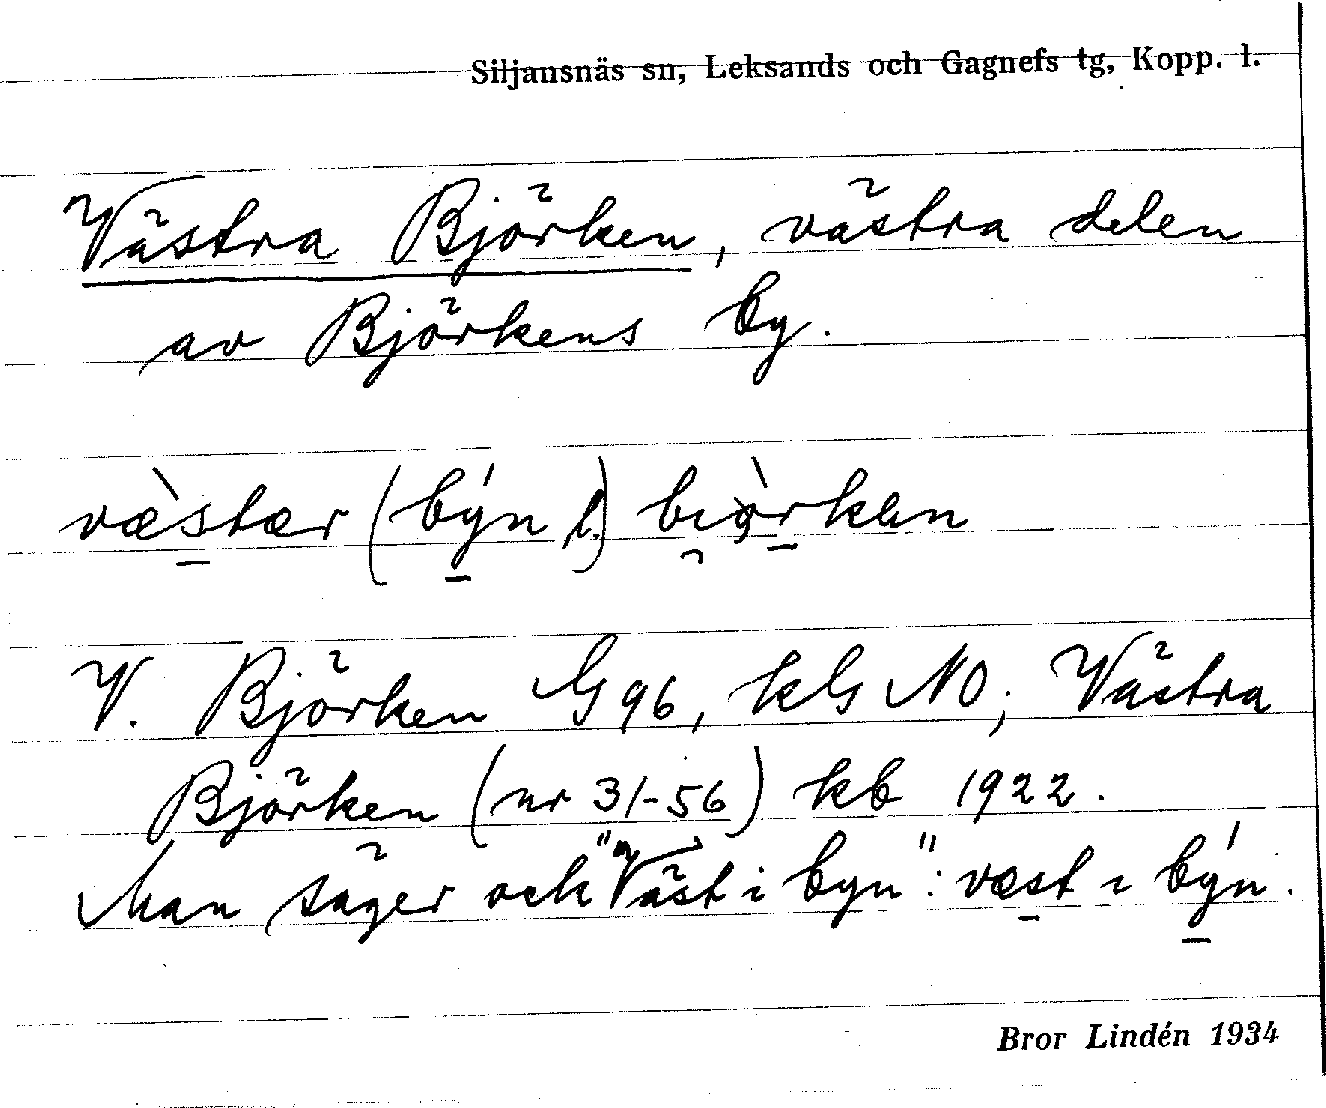 Siljansnäs sn, Leksands och Gagnefs tg, Kopp. l.
Västra Björken, västra delen
av Björkens by.
væ̀stær (býn l.) biòrkən
V. Björken G 96, kG NO; Västra
Björken (nr 31-56) kb 1922.
Man säger och "Väst i byn": væst ı býn.
Bror Lindén 1934